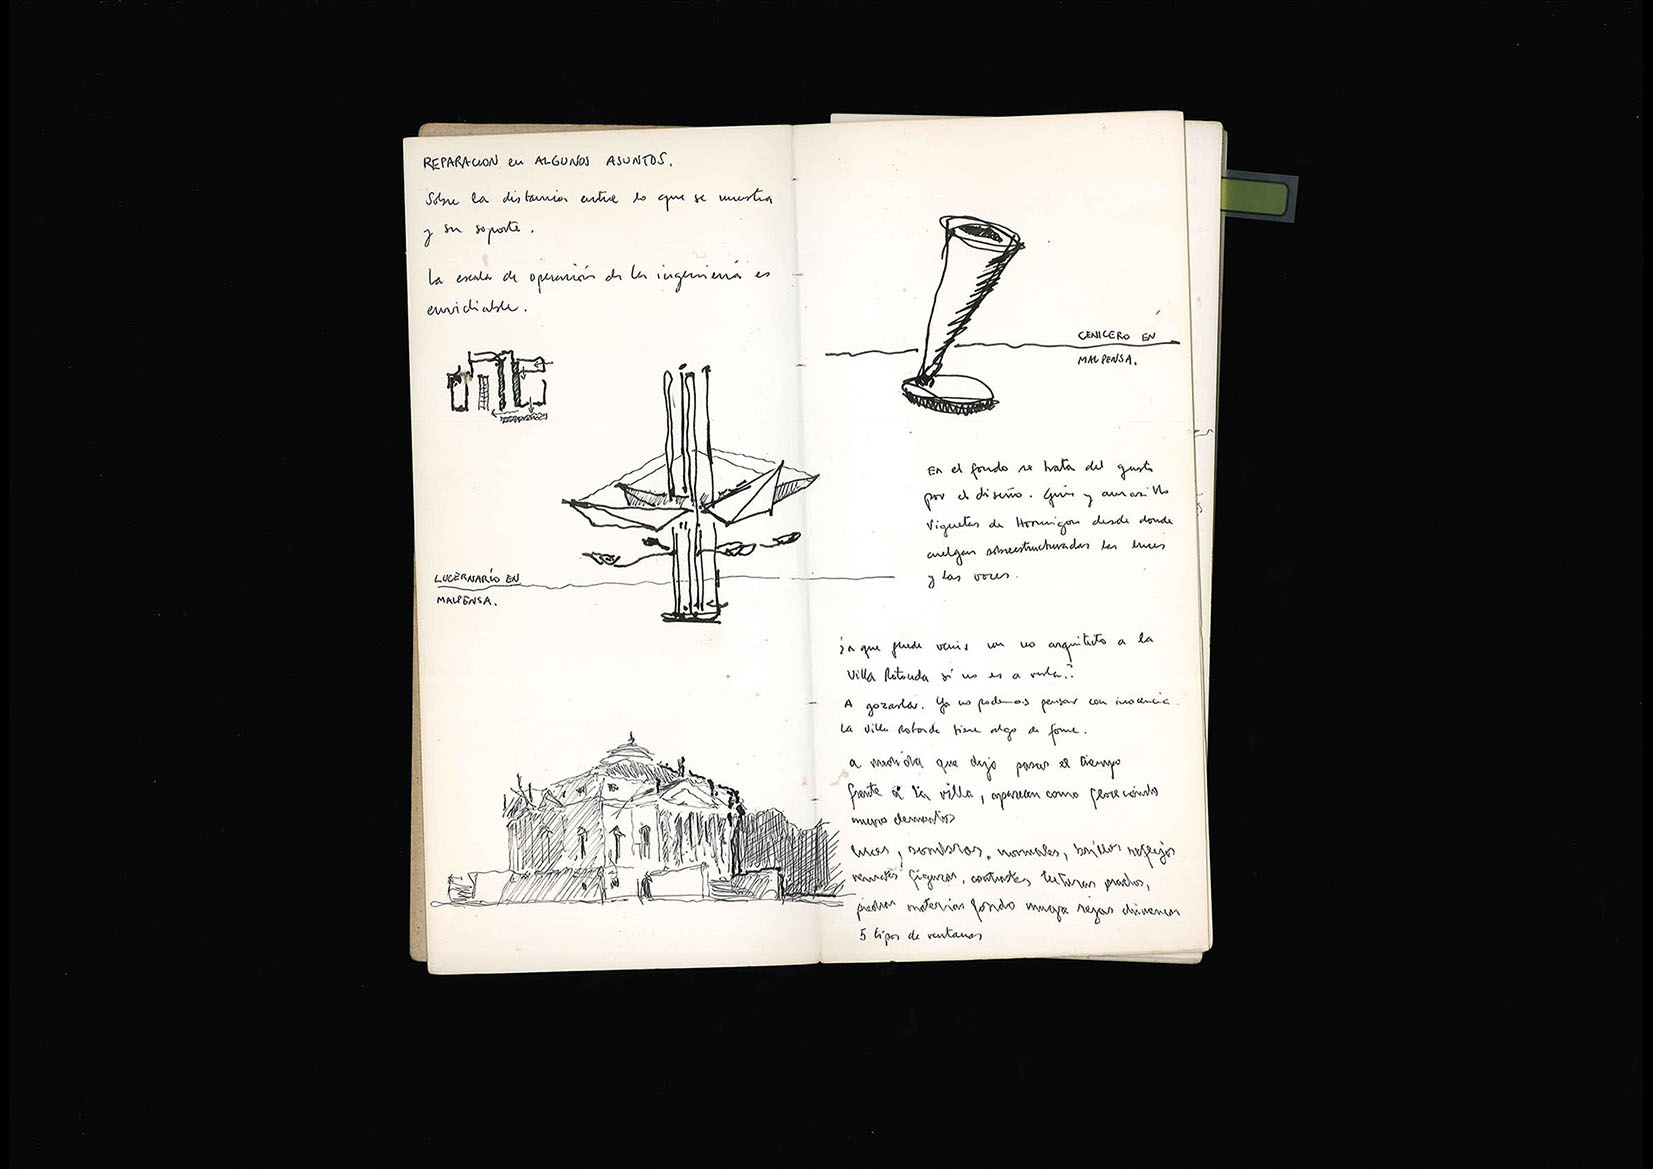 REPARACION en ALGUNOS ASUNTOS.
Sobre la distancia entre lo que se muestra
y su soporte.
La escala de operación de la ingeniería es
envidiable.
LUCERNARIO EN
MALPENSA.
CENICERO EN
MALPENSA.
En el fondo se trata del gusto
por el diseño. Gris y amarillo
Viguetas de Hormigon desde donde
cuelgan sobreestructuradas las luces
y las voces.
¿A que puede venir un no arquitecto a la
Villa Rotonda si no es a verla?
A gozarla. Ya no podemos pensar con inocencia.
La Villa Rotonda tiene algo de fome.
a medida que dejo pasar el tiempo
frente a la villa, aparecen como floreciendo
nuevos elementos
luces, sombras, normales, brillos reflejos
figuras, contrastes texturas prados,
piedras materias fondo rejas
5 tipos de ventanas